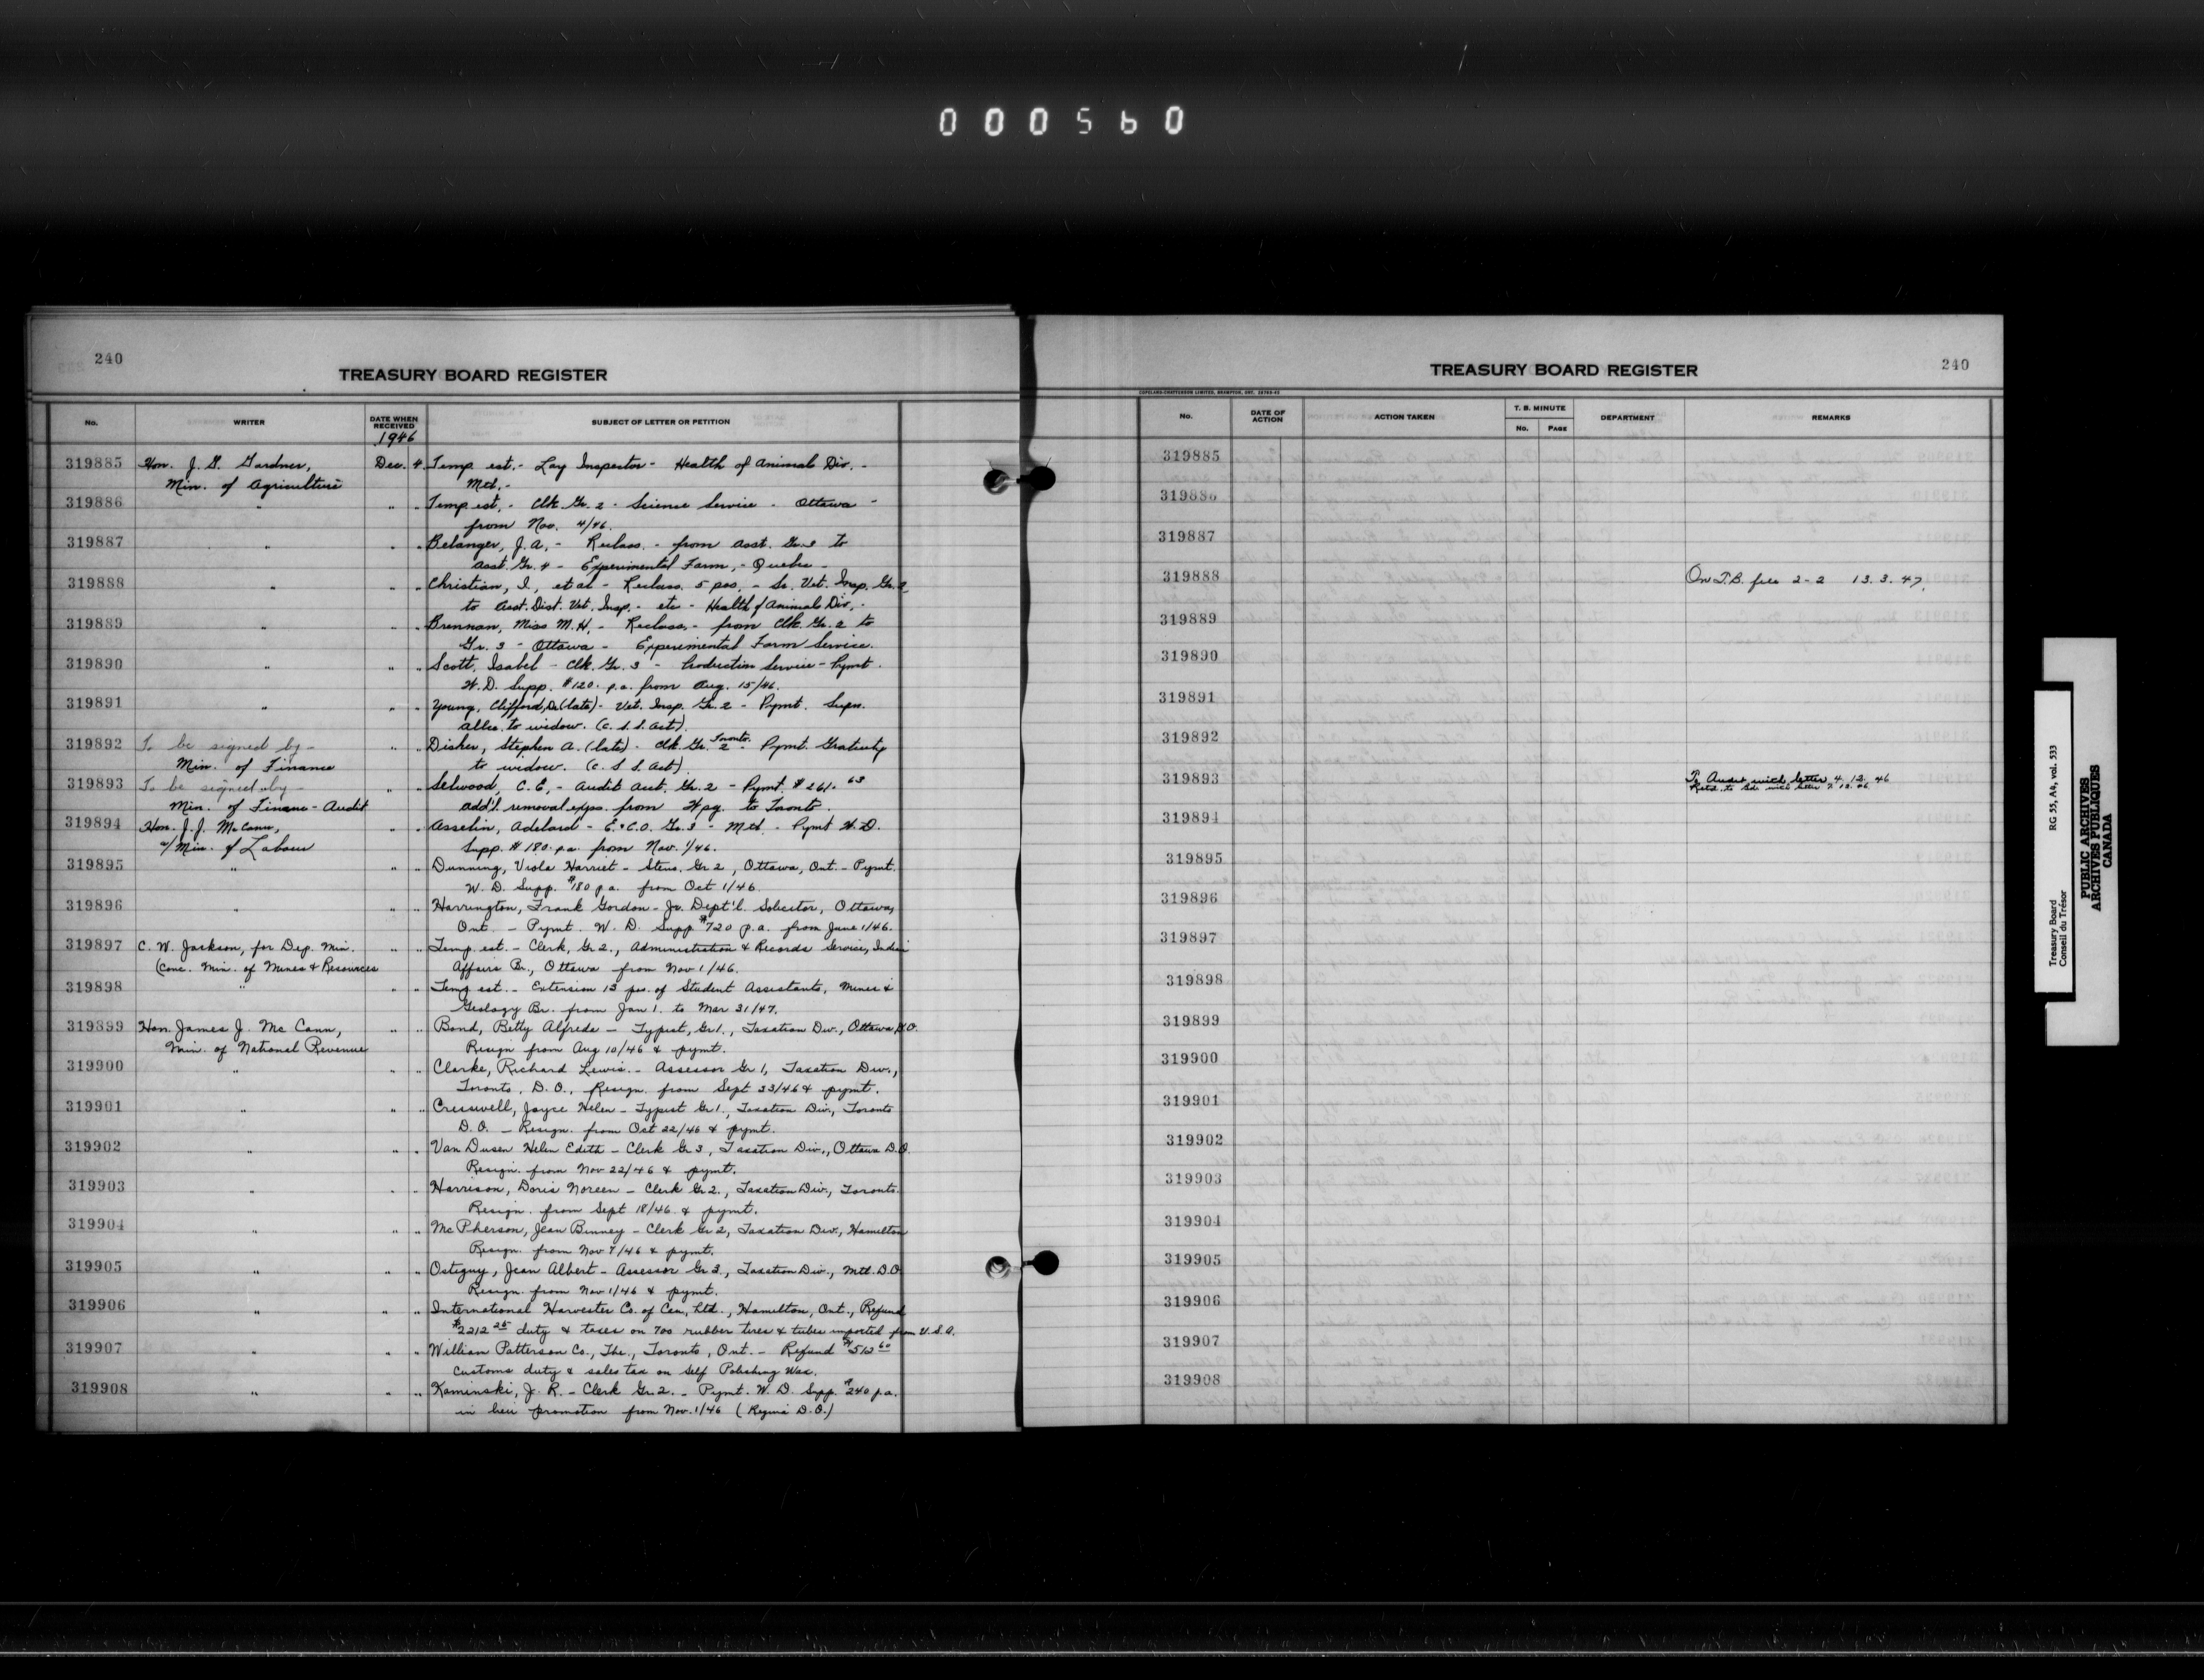 000560
240
TREASURY BOARD REGISTER
No. WRITER DATE WHEN RECEIVED SUBJECT OF LETTER OR PETITION
1946
319885 Hon. J. G. Gardner, Dec. 4. Temp. est. - Lay Inspector - Health of Animals Div. -
Min. of Agriculture Mtl. -
319886 " " " Temp. est. - Clk. Gr. 2 - Science Service - Ottawa -
from Nov. 4/46.
319887 " " " Belanger, J.A., - Reclass. - from Asst. Gr. 3 to
Asst. Gr. 4 - Experimental Farm, - Quebec -
319888 " " " Christian, I., et al - Reclass. 5 pos. - Sr. Vet. Insp. Gr. 2
to Asst. Dist. Vet. Insp. - etc - Health of Animals Div. -
319889 " " " Brennan, Miss M.H. - Reclass. - from Clk. Gr. 2 to
Gr. 3 - Ottawa - Experimental Farm Service.
319890 " " " Scott, Isabel - Clk. Gr. 3 - Production Service - Pymt.
W.D. Supp. $120. p.a. from Aug. 15/46.
319891 " " " Young, Clifford, (late) - Vet. Insp. Gr. 2 - Pymt. Supn.
allce. to widow. (C.S.S. Act).
319892 To be signed by - " " Disher, Stephen A. (late) - Clk. Gr. 2 - Toronto. Pymt. Gratuity
Min. of Finance to widow. (C.S.S. Act).
319893 To be signed by - " " Selwood, C.E., - Audit Acct. Gr. 2 - Pymt. $261.63
Min. of Finance - Audit add'l. removal exps. from Wpg. to Toronto.
319894 Hon. J.J. McCann, " " Asselin, Adelard - E.&C.O. Gr. 3 - Mtl. - Pymt W.D.
a/Min. of Labour Supp. $180. p.a. from Nov. 1/46.
319895 " " " Dunning, Viola Harriet - Steno. Gr 2, Ottawa, Ont. - Pymt.
W.D. Supp. $180 p.a. from Oct 1/46.
319896 " " " Harrington, Frank Gordon - Jr. Dept'l. Solicitor, Ottawa,
Ont. - Pymt. W.D. Supp $720 p.a. from June 1/46.
319897 C. W. Jackson, for Dep. Min. " " Temp. est. - Clerk, Gr 2., Administration & Records Service, Indian
(Conc. Min. of Mines & Resources Affairs Br., Ottawa from Nov 1/46.
319898 " " " Temp est. - Extension 13 pos. of Student Assistants, Mines &
Geology Br. from Jan 1. to Mar 31/47.
319899 Hon. James J. McCann, " " Bond, Betty Alfreda - Typist, Gr 1., Taxation Div., Ottawa D.O.
Min. of National Revenue Resign from Aug 10/46 & pymt.
319900 " " " Clarke, Richard Lewis. - Assessor Gr 1, Taxation Div.,
Toronto, D.O., Resign. from Sept 23/46 & pymt.
319901 " " " Cresswell, Joyce Helen - Typist Gr 1., Taxation Div., Toronto
D.O. - Resign. from Oct 22/46 & pymt.
319902 " " " Van Dusen Helen Edith - Clerk Gr 3, Taxation Div., Ottawa D.O.
Resign. from Nov 22/46 & pymt.
319903 " " " Harrison, Doris Noreen - Clerk Gr 2., Taxation Div., Toronto.
Resign. from Sept 18/46 & pymt.
319904 " " " McPherson, Jean Binney - Clerk Gr 2, Taxation Div., Hamilton
Resign. from Nov 7/46 & pymt.
319905 " " " Ostiguy, Jean Albert - Assessor Gr 3., Taxation Div., Mtl. D.O.
Resign. from Nov 1/46 & pymt.
319906 " " " International Harvester Co. of Can. Ltd., Hamilton, Ont., Refund
$2212 25 duty & taxes on 700 rubber tires & tubes imported from U.S.A.
319907 " " " William Patterson Co., The., Toronto, Ont. - Refund $512 60
Customs duty & sales tax on Self Polishing Wax.
319908 " " " Kaminski, J. R. - Clerk Gr. 2. - Pymt. W.D. Supp. $240 p.a.
in lieu promotion from Nov. 1/46 (Regina D.O.)
TREASURY BOARD REGISTER
240
COPELAND-CHATTERSON LIMITED, BRAMPTON, ONT.
No. DATE OF ACTION ACTION TAKEN T. B. MINUTE No. PAGE DEPARTMENT REMARKS
319885
319886
319887
319888 On T.B. file 2-2 13.3.47.
319889
319890
319891
319892
319893 To Audit with letter 4.12.46
Retd. to with letter 7.12.46
319894
319895
319896
319897
319898
319899
319900
319901
319902
319903
319904
319905
319906
319907
319908
Treasury Board RG 55, A4, vol. 333
Conseil du Trésor
PUBLIC ARCHIVES
ARCHIVES PUBLIQUES
CANADA